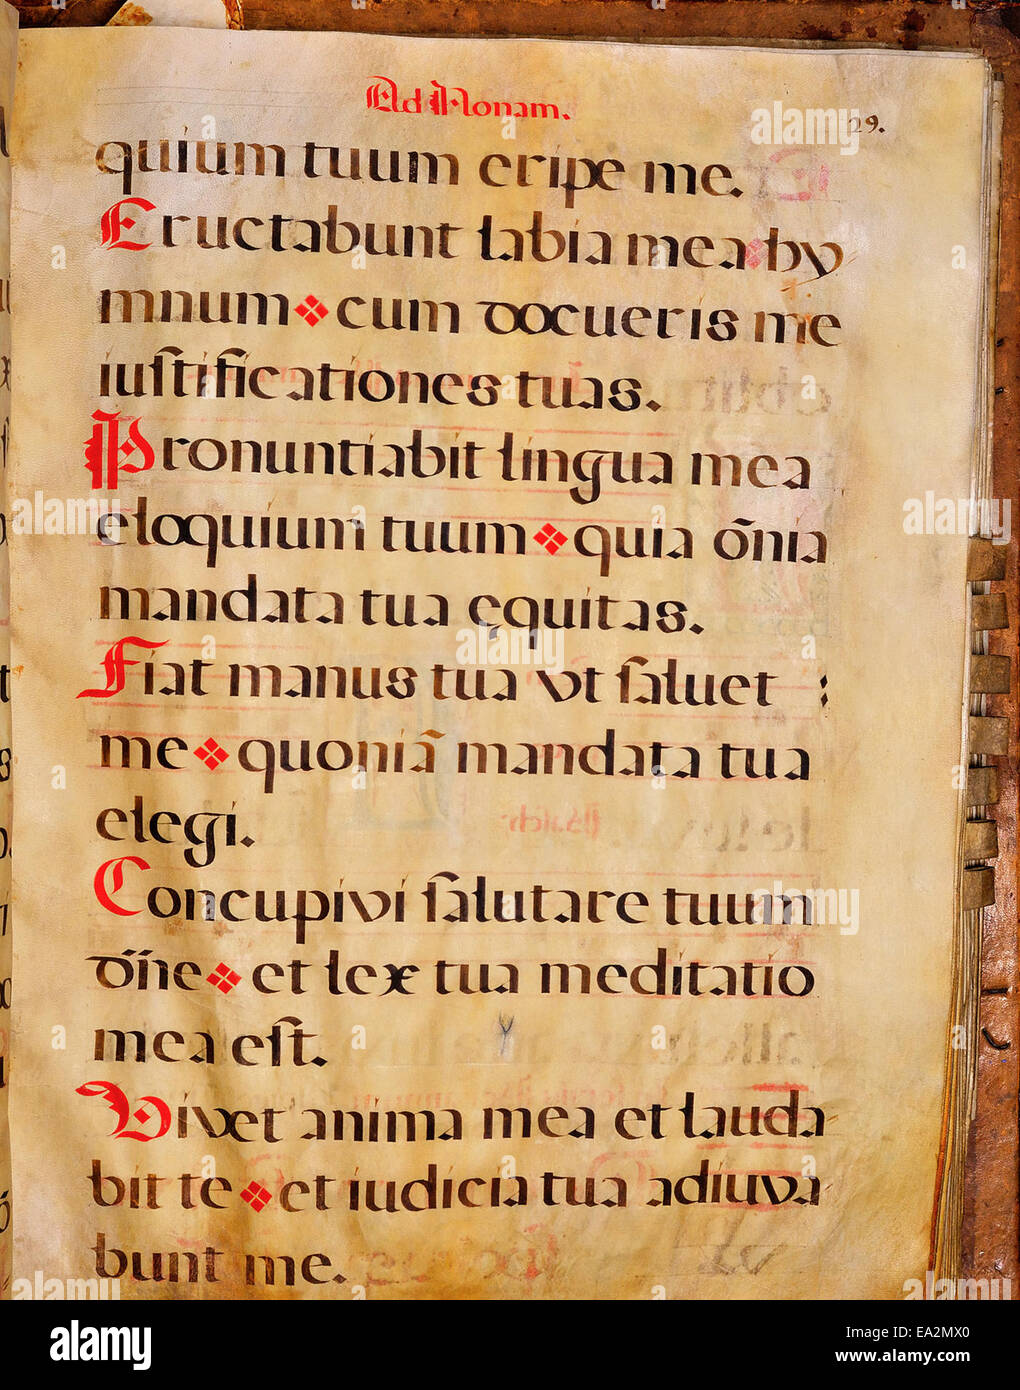 Ad Nonam.
29.
quium tuum eripe me.
Eructabunt labia mea hy
mnum cum docueris me
iustificationes tuas.
Pronuntiabit lingua mea
eloquium tuum quia õnia
mandata tua ęquitas.
Fiat manus tua vt saluet :
me quoniã mandata tua
elegi.
Concupivi salutare tuum
dñe et lex tua meditatio
mea est.
Vivet anima mea et lauda
bit te et iudicia tua adiuva
bunt me.
alamy
alamy stock photo
EA2MX0
www.alamy.com